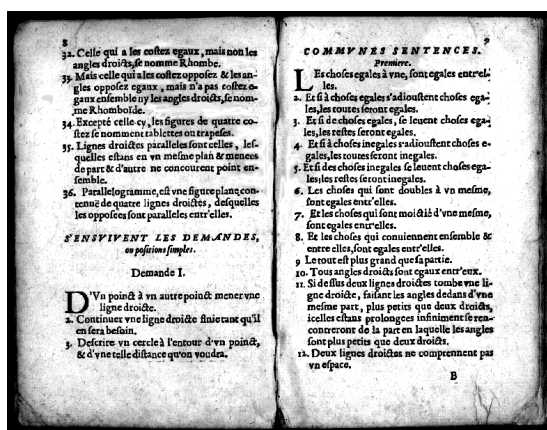 8
32. Celle qui a les costez egaux, mais non les
angles droicts, se nomme Rhombe.
33. Mais celle qui a les costez opposez & les an-
gles opposez egaux, mais n'a pas costez e-
gaux ensemble ny les angles droicts, se nom-
me Rhomboïde.
34. Excepté celle-cy, les figures de quatre co-
stez se nomment tablettes ou trapeses.
35. Lignes droictes paralleles sont celles, les-
quelles estans en vn mesme plan & menees
de part & d'autre ne concourent point en-
semble.
36. Parallelogramme, est vne figure plane con-
tenue de quatre lignes droictes, desquelles
les opposées sont paralleles entr'elles.
S'ENSVIVENT LES DEMANDES,
ou positions simples.
Demande I.
D'Vn poinct à vn autre poinct mener vne
ligne droicte.
2. Continuer vne ligne droicte finie tant qu'il
en sera besoin.
3. Descrire vn cercle à l'entour d'vn poinct,
& d'vne telle distance qu'on voudra.
9
COMMVNES SENTENCES.
Premiere.
LEs choses egales à vne, sont egales entr'el-
les.
2. Et si à choses egales s'adioustent choses ega-
les, les toutes seront egales.
3. Et si de choses egales, se leuent choses ega-
les, les restes seront egales.
4. Et si à choses inegales s'adioustent choses e-
gales, les toutes seront inegales.
5. Et si des choses inegales se leuent choses ega-
les, les restes seront inegales.
6. Les choses qui sont doubles à vn mesme,
sont egales entr'elles.
7. Et les choses qui sont moictié d'vne mesme,
sont egales entr'elles.
8. Et les choses qui conuiennent ensemble &
entre elles, sont egales entr'elles.
9 Le tout est plus grand que sa partie.
10. Tous angles droicts sont egaux entr'eux.
11. Si dessus deux lignes droictes tombe vne li-
gne droicte, faisant les angles dedans d'vne
mesme part, plus petits que deux droicts,
icelles estans prolongees infiniment se ren-
contreront de la part en laquelle les angles
sont plus petits que deux droicts.
12. Deux lignes droictes ne comprennent pas
vn espace.
B